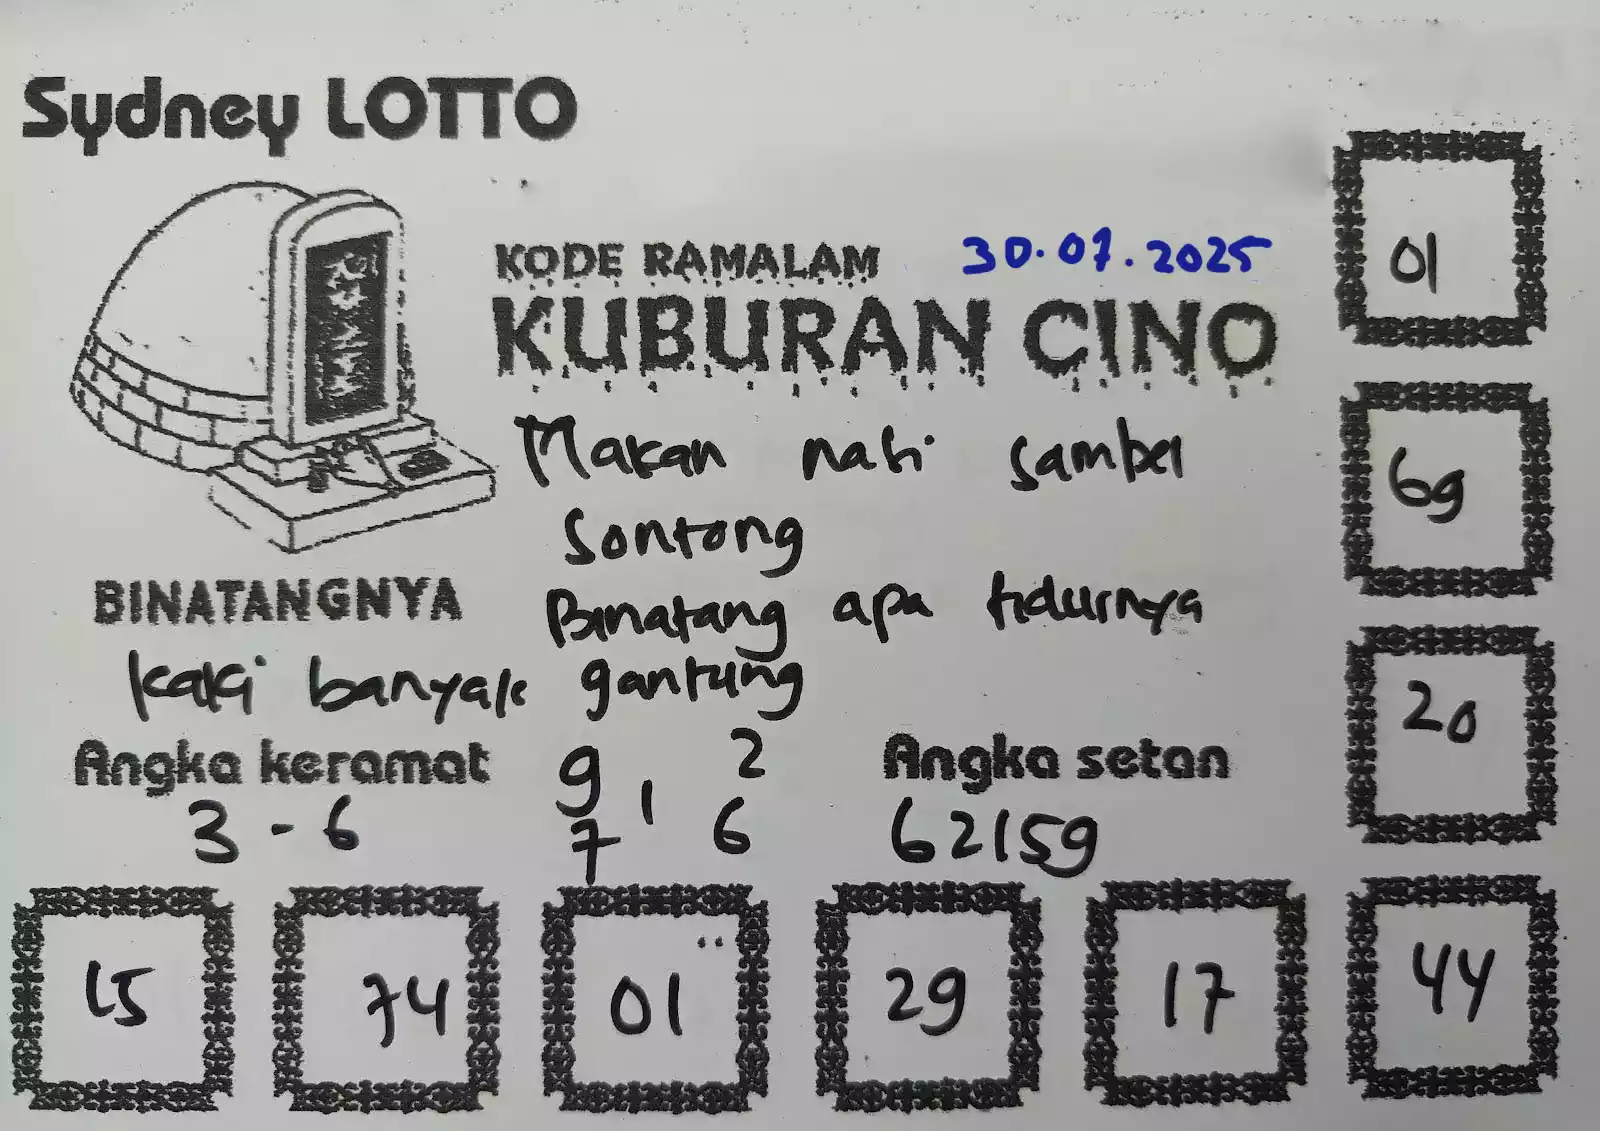 Sydney LOTTO
KODE RAMALAM 30.07.2025
KUBURAN CINO
Makan nasi sambel
Sontong
BINATANGNYA
Binatang apa tidurnya
kaki banyak gantung
Angka keramat
3 - 6
9, 2
7 6
Angka setan
62159
01
69
20
15 74 01 29 17 44